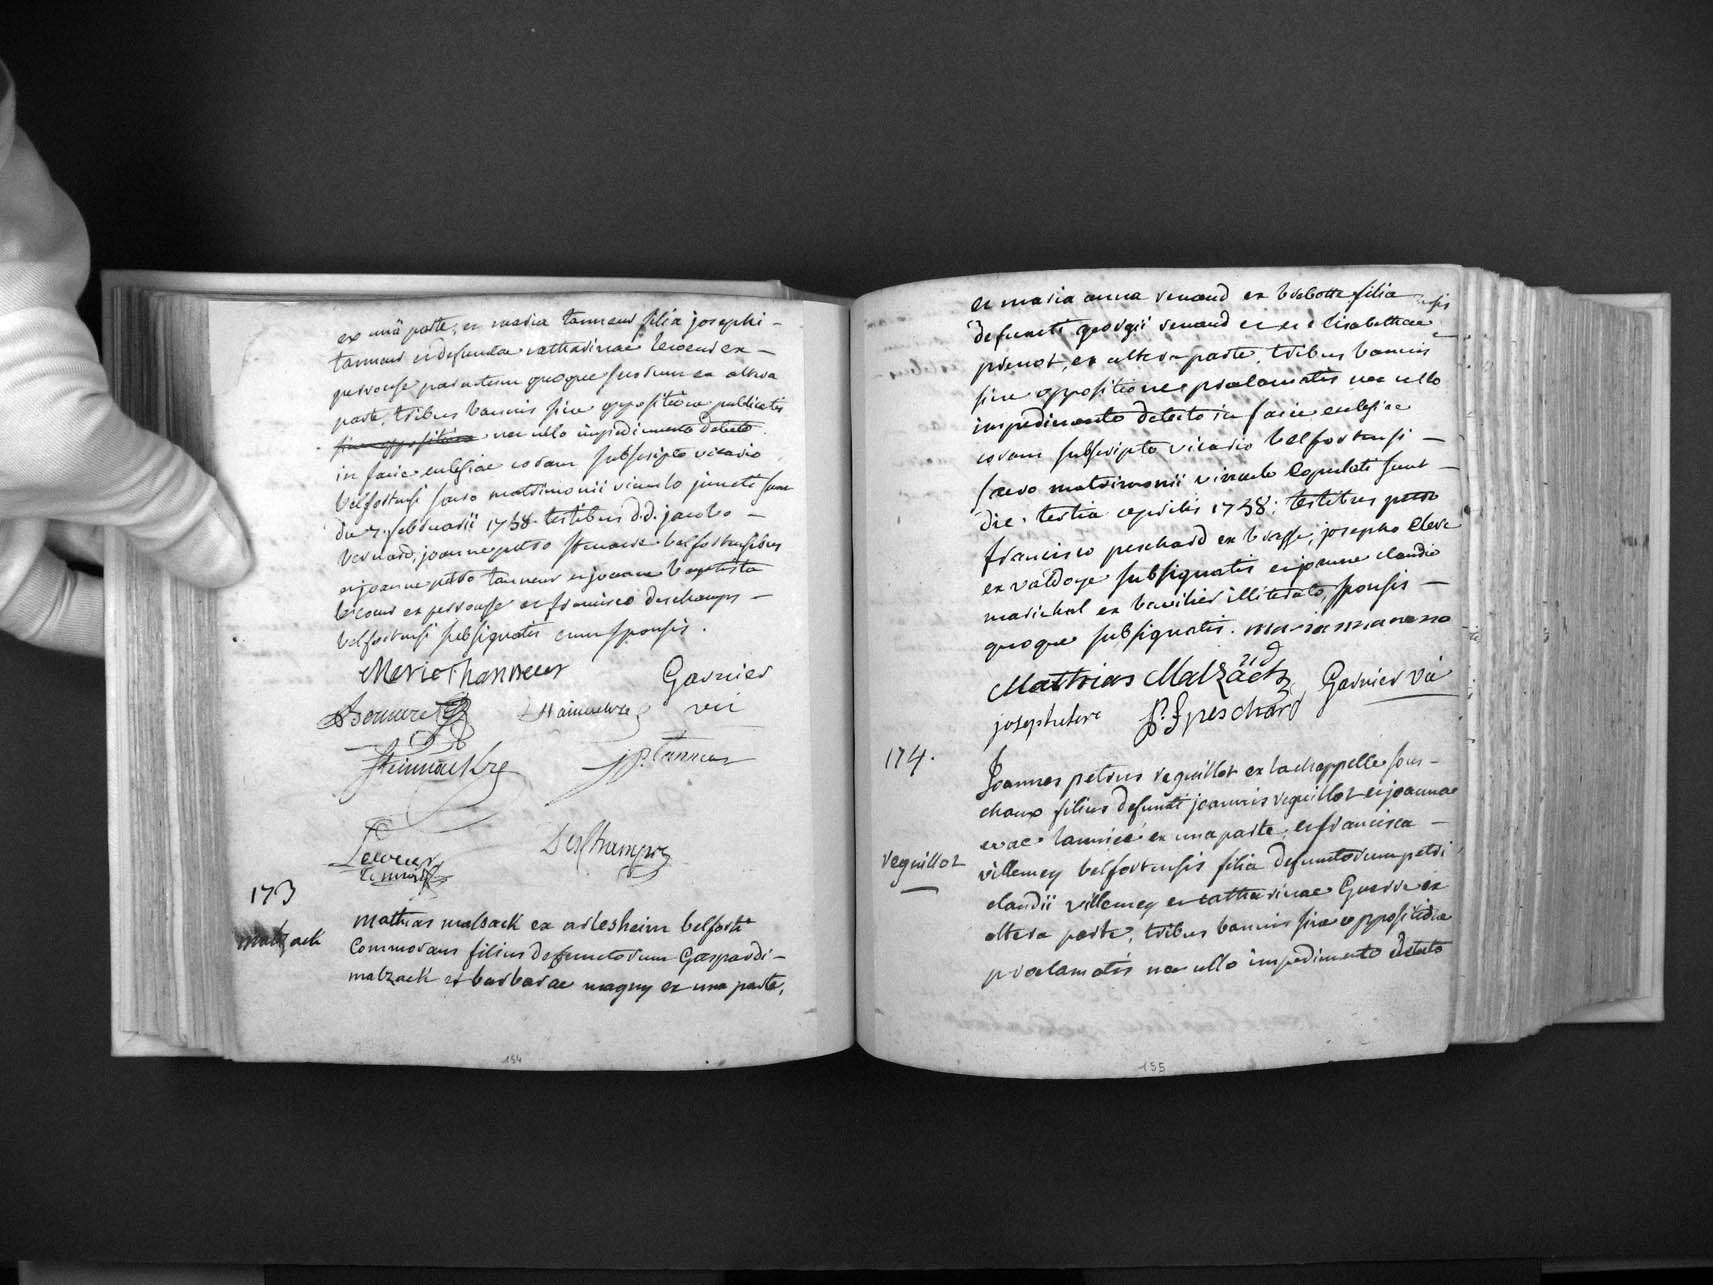 ex una parte, et maria tanneur filia josephi -
tanneur et defunctae catharinae lecour ex -
perrouse parentum quoque suorum ex altera
parte, tribus bannis sine oppositione publicatis
sine oppositione nec ullo impedimento detecto
in facie ecclesiae coram subscripto vicario
belfortensi sacro matrimonii vinculo juncti sunt
die 7. februarii 1758. testibus d.d. jacobo -
bernard, joanne petro belfortensibus
et joanne petro tanneur et joanne baptista
lecour ex perrouse et francisco deschamps -
belfortensi subsignatis cum sponsis.
Marie Thanneur
Garnier
Bernard
vic
jp. Tanneur
Lecour
Deschamps
173
malzack
mathias malsack ex arlesheim belforti
Commorans filius defunctorum Gaspardi -
malzack et barbarae magny ex una parte,
154
et maria anna renaud ex brebotte filia
defuncti georgii renaud et elisabethae
prenot, ex altera parte, tribus bannis
sine oppositione proclamatis nec ullo
impedimento detecto in facie ecclesiae
coram subscripto vicario belfortensi -
sacro matrimonii vinculo copulati sunt -
die tertia aprilis 1758: testibus petro
francisco peschard ex brasse, josepho cleve
ex valdoye subsignatis et joanne claudio
marichal ex bavilier illiterato, sponsis -
quoque subsignatis. maria anna reno
Mathias Malzack
Garnier vic
P. f. peschard
174.
veguillot
Joannes petrus veguillot ex lachappelle sous -
chaux filius defuncti joannis veguillot et joannae
evae ex una parte, et francisca -
villemey belfortensis filia defunctorum petri
claudii villemey et catharinae Guerre ex
altera parte, tribus bannis sine oppositione
proclamatis nec ullo impedimento detecto
155